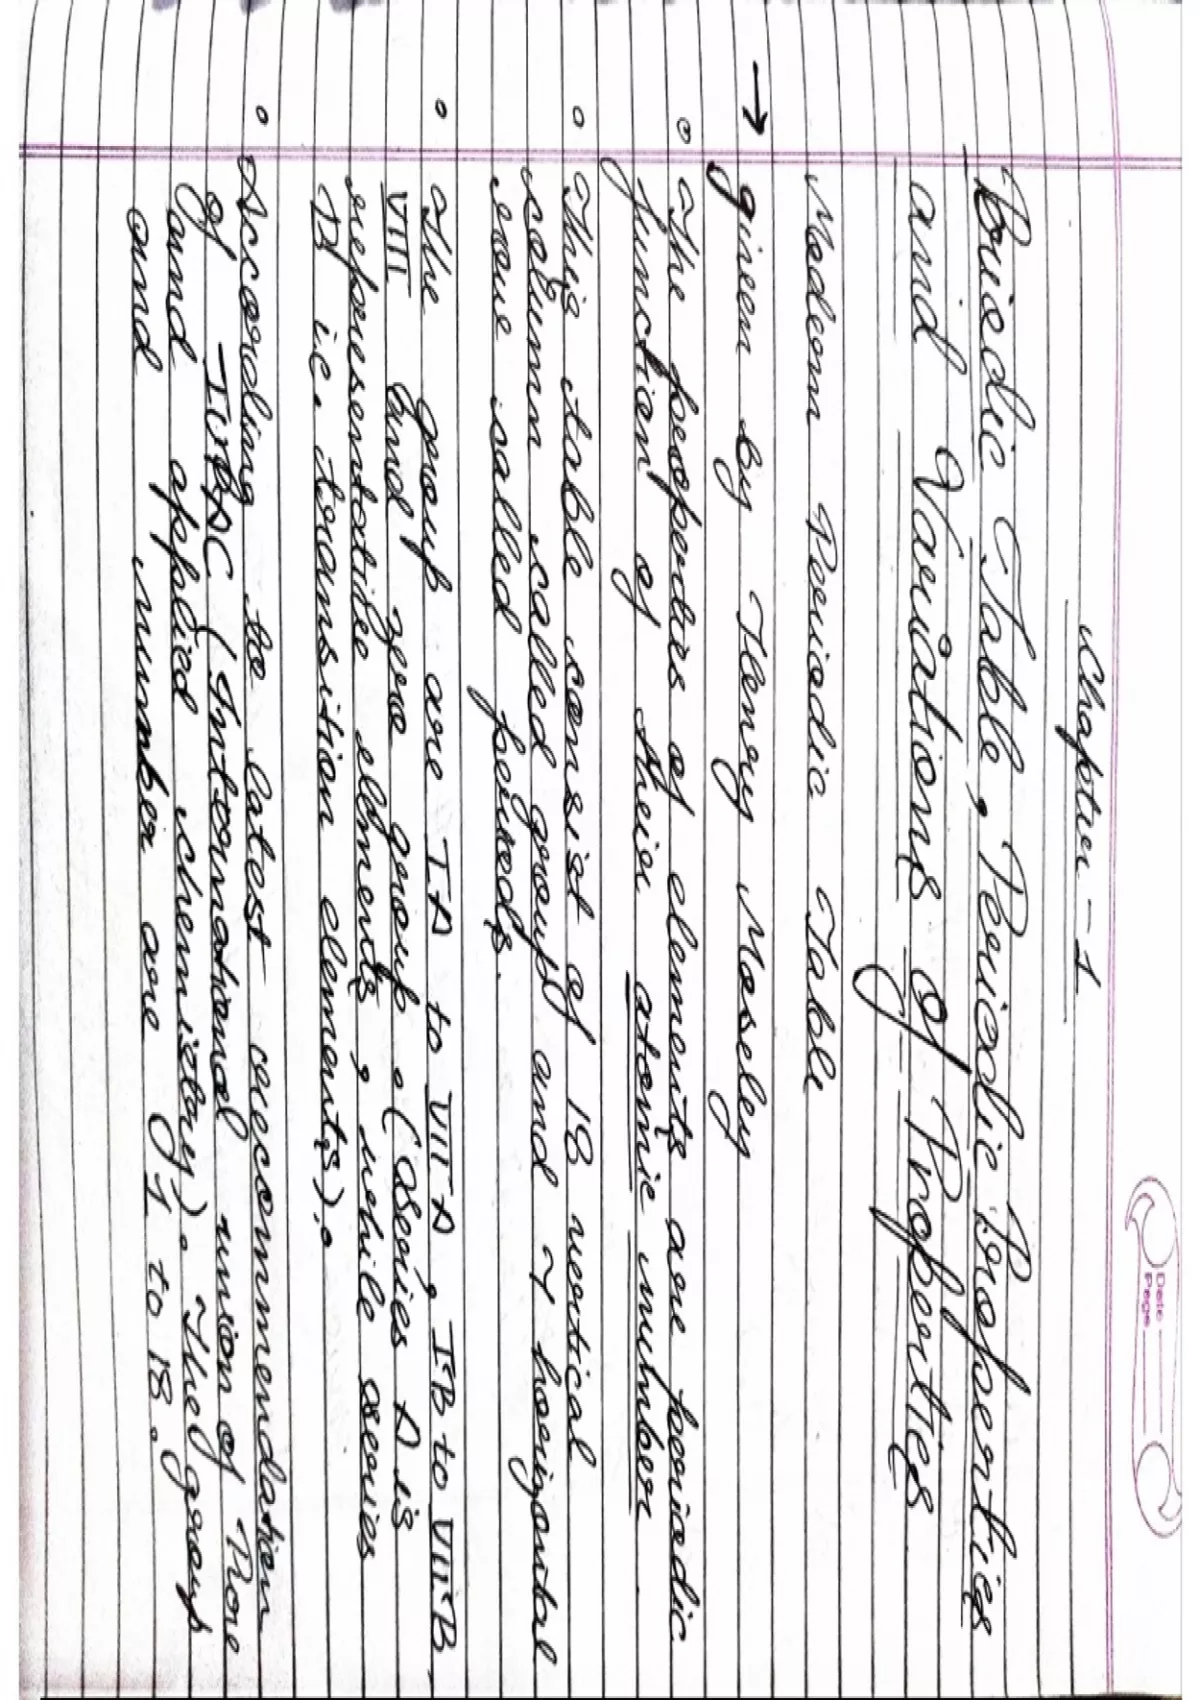 Date
Page
Chapter - 1
Periodic Table, Periodic Properties
and Variations of Properties
Modern Periodic Table
→ given by Henry Moseley
The properties of elements are periodic
function of their atomic number
This table consist of 18 vertical
column called group and 7 horizontal
rows called periods.
The group are IA to VIIA, IB to VIIB,
VIII and zero group. (Series A is
representative elements, while series
B i.e. transition elements).
According to latest reccommendation
of IUPAC (International union of Pure
and applied chemistry). The group
and number are 1 to 18.